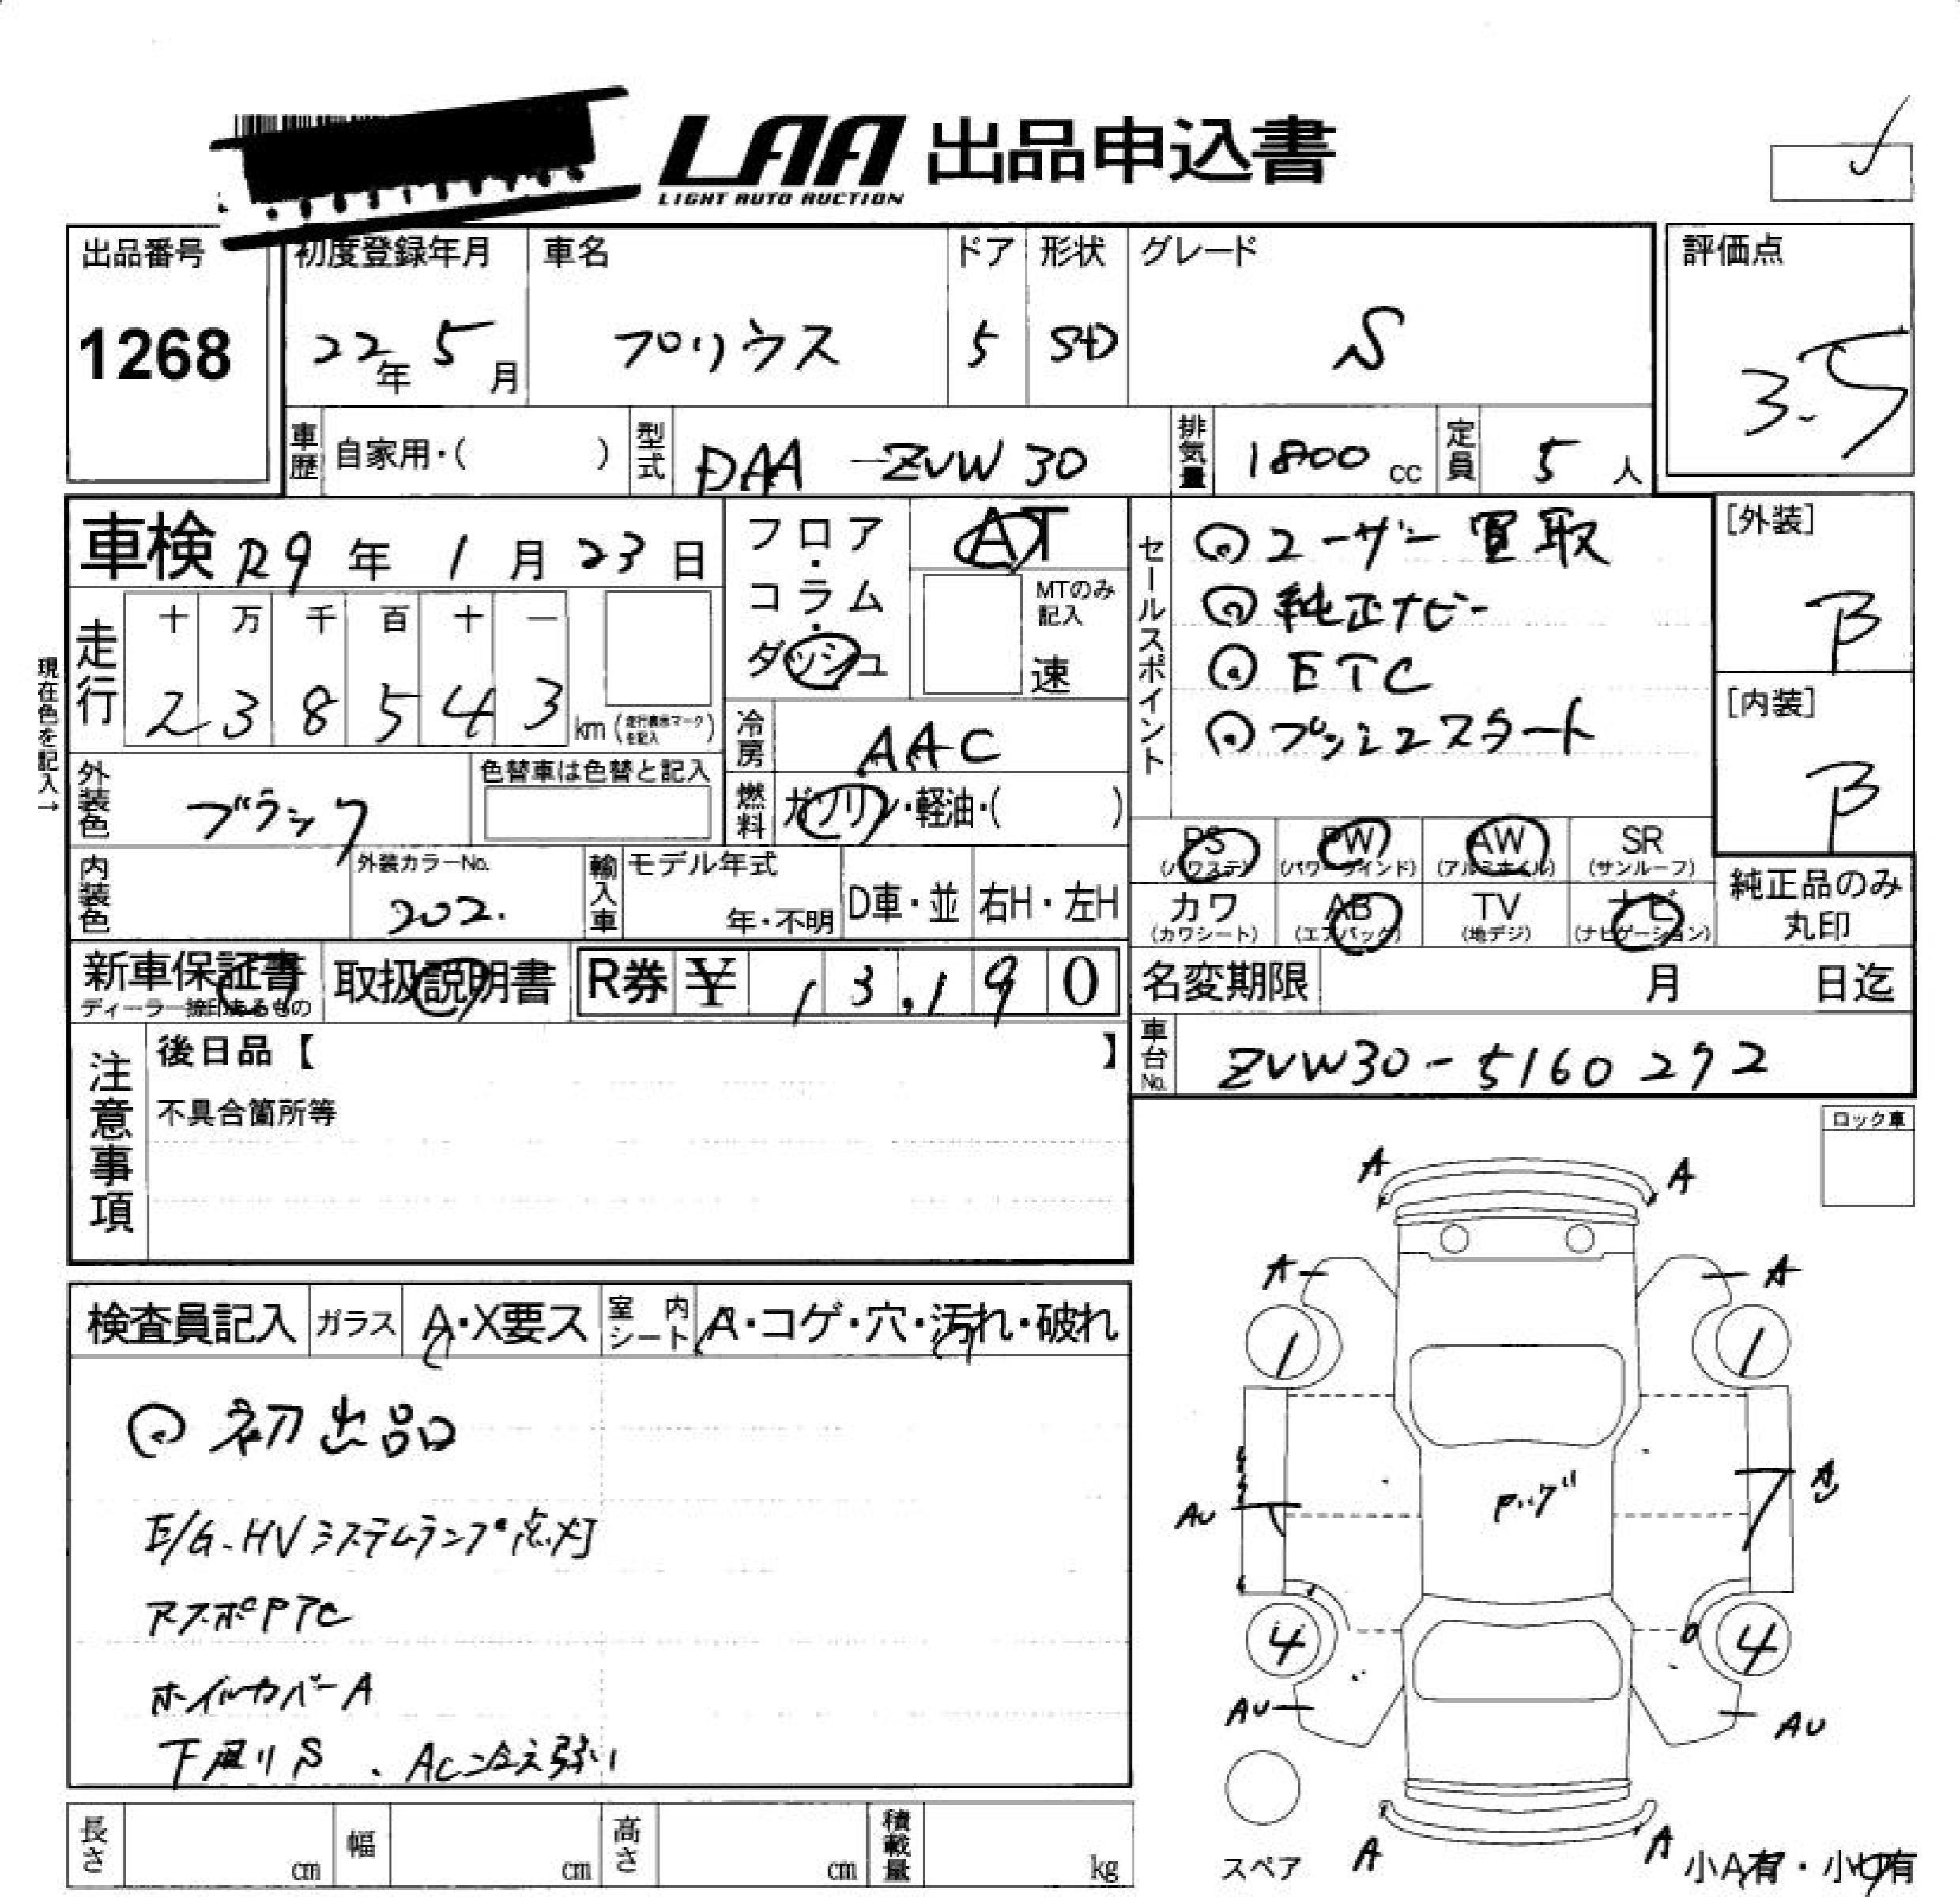 LAA 出品申込書
LIGHT AUTO AUCTION
出品番号
1268
初度登録年月
22年 5月
車名
プリウス
ドア
5
形状
SD
グレード
S
評価点
3.5
車歴 自家用・( )
型式 DAA-ZVW30
排気量 1800 cc
定員 5 人
車検 R9年 1月 23日
フロア・コラム・ダッシュ
AT
MTのみ記入
速
セールスポイント
ユーザー買取
純正ナビー
ETC
プッシュスタート
[外装]
B
[内装]
B
現在色を記入→
走行
十 万 千 百 十 一
2 3 8 5 4 3 km (走行表示マークを記入)
冷房 AAC
外装色 ブラック
色替車は色替と記入
燃料 ガソリン・軽油・( )
PS (パワステ) PW (パワーウインド) AW (アルミホイル) SR (サンルーフ)
カワ (カワシート) AB (エアバック) TV (地デジ) ナビ (ナビゲーション)
純正品のみ丸印
内装色
外装カラーNo.
202.
輸入車
モデル年式
年・不明
D車・並
右H・左H
新車保証書
ディーラー捺印あるもの
取扱説明書
R券 ¥ 13,190
名変期限 月 日迄
車台No. ZVW30-5160272
注意事項
後日品【 】
不具合箇所等
ロック車
検査員記入 ガラス A・X要ス 室内シート A・コゲ・穴・汚れ・破れ
初出品
E/G、HVシステムランプ点灯
アスポPTC
ホイルカバーA
下廻りS、AC冷え弱い
A A
A A
1 1
AU
A
4 4
AU AU
スペア
A A
小A有・小U有
長さ cm
幅 cm
高さ cm
積載量 kg